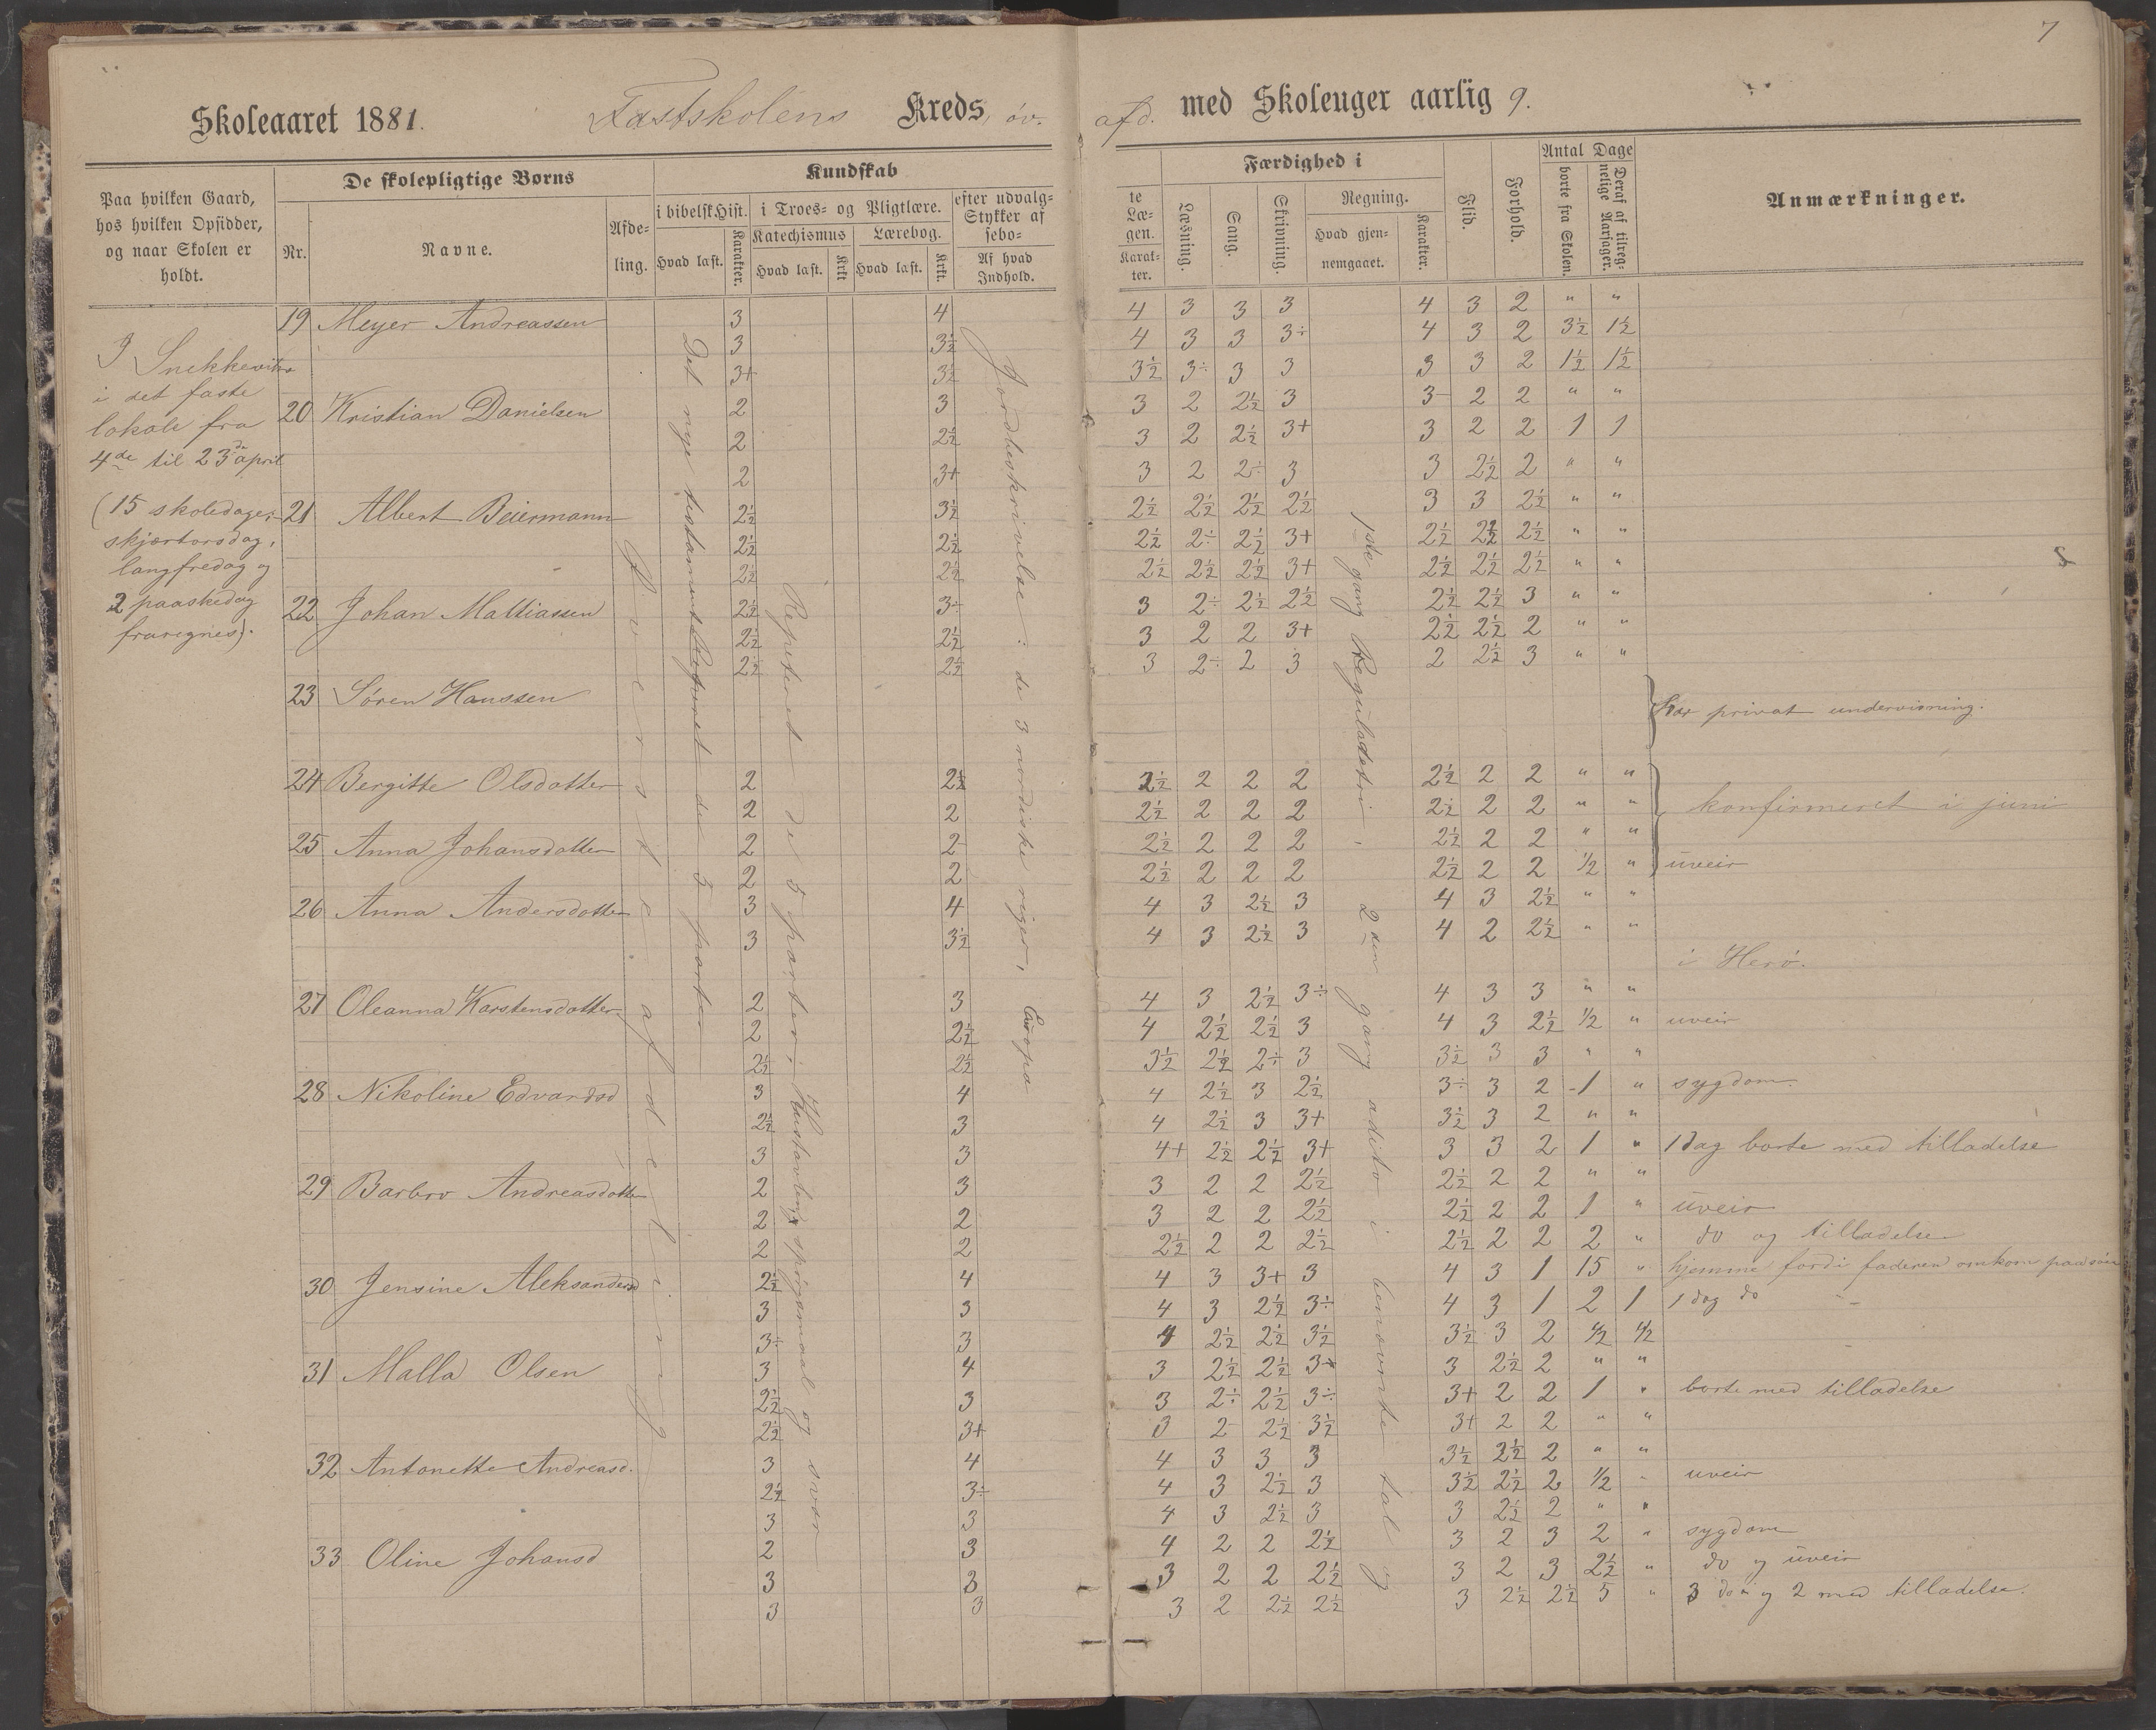 7
Skoleaaret 1881. Fastskolens Kreds, öv. afd. med Skoleuger aarlig 9.
Paa hvilken Gaard, hos hvilken Opsidder, og naar Skolen er holdt.
De skolepligtige Børns
Nr. Navne. Afdeling.
Kundskab
i bibelsk Hist. i Troes- og Pligtlære. efter udvalg- te
Stykker af Læ-
sebo- gen.
Hvad læst. Karakter. Katechismus Hvad læst. Krkt. Lærebog. Hvad læst. Krkt. Af hvad Indhold. Karakter.
Færdighed i
Læsning. Sang. Skrivning. Regning. Hvad gjennemgaaet. Karakter.
Flid. Forhold. Antal Dage borte fra Skolen. Deraf af tilregnelige Aarsager.
Anmærkninger.
I Snekkevik
i det faste
lokale fra
4de til 23de april
(15 skoledage;
skjærtorsdag,
langfredag og
2 paaskedag
fraregnes).
Øverste afdeling
Det nye testament Repeteret de 5 parter
Repeteret de 5 parter; spørgsmaal og svar
Jordbeskrivelse: de 3 nordiske riger, Europa
1ste gang Reguladetri. 2den gang adito i benævnte tal og
19 Meyer Andreassen 3 4 4 3 3 3 4 3 2 " "
3 3½ 4 3 3 3÷ 4 3 2 3½ 1½
3+ 3½ 3½ 3÷ 3 3 3 3 2 1½ 1½
20 Kristian Danielsen 2 3 3 2 2½ 3 3- 2 2 " "
2 2½ 3 2 2½ 3+ 3 2 2 1 1
2 3+ 3 2 2÷ 3 3 2½ 2 " "
21 Albert Beiermann 2½ 3½ 2½ 2½ 2½ 2½ 3 3 2½ " "
2½ 2½ 2½ 2÷ 2½ 3+ 2½ 2½ 2½ " "
2½ 2½ 2½ 2½ 2½ 3+ 2½ 2½ 2½ " "
22 Johan Mattiassen 2½ 3÷ 3 2÷ 2½ 2½ 2½ 2½ 3 " "
2½ 2½ 3 2 2 3+ 2½ 2½ 2 " "
2½ 2½ 3 2÷ 2 3 2 2½ 3 " "
23 Søren Hanssen har privat undervisning.
24 Bergitte Olsdatter 2 2½ 2½ 2 2 2 2½ 2 2 " "
2 2 2½ 2 2 2 2½ 2 2 " " konfirmeret i juni
25 Anna Johansdatter 2 2- 2½ 2 2 2 2½ 2 2 " "
2 2 2½ 2 2 2 2½ 2 2 ½ " uveir
26 Anna Andersdatter 3 4 4 3 2½ 3 4 3 2½ " "
3 3½ 4 3 2½ 3 4 2 2½ " "
i Herö.
27 Oleanna Karstensdatter 2 3 4 3 2½ 3÷ 4 3 3 " "
2 2½ 4 2½ 2½ 3 4 3 2½ ½ " uveir
2½ 2½ 3½ 2½ 2÷ 3 3½ 3 3 " "
28 Nikoline Edvardsd 3 4 4 2½ 3 2½ 3÷ 3 2 1 " sygdom
2½ 3 4 2½ 3 3+ 3½ 3 2 " "
3 3 4+ 2½ 2½ 3+ 3 3 2 1 " 1 dag borte med tilladelse
29 Barbro Andreasdatter 2 3 3 2 2 2½ 2½ 2 2 " "
2 2 3 2 2 2½ 2½ 2 2 1 " uveir
2 2 2½ 2 2 2½ 2½ 2 2 2 " do og tilladelse
30 Jensine Aleksandersd 2½ 4 4 3 3+ 3 4 3 1 15 " hjemme fordi faderen omkom paa söen
3 3 4 3 2½ 3÷ 4 3 1 2 1 1 dag do
3÷ 3 4 2½ 2½ 3½ 3½ 3 2 ½ ½
31 Malla Olsen 3 4 3 2½ 2½ 3+ 3 2½ 2 " "
2½ 3 3 2÷ 2½ 3÷ 3+ 2 2 1 " borte med tilladelse
2½ 3+ 3 2- 2½ 3½ 3+ 2 2 " "
32 Antonette Andreasd. 3 4 4 3 3 3 3½ 2½ 2 " "
2½ 3÷ 4 3 2½ 3 3½ 2½ 2 ½ " uveir
3 3 4 3 2½ 3 3 2½ 2 " "
33 Oline Johansd 2 3 4 2 2 2½ 3 2 3 2 " sygdom
3 3 3 2 2 2½ 3 2 3 2½ " do og uveir
3 3 3 2 2½ 2½ 3 2½ 2½ 5 " 3 do og 2 med tilladelse.